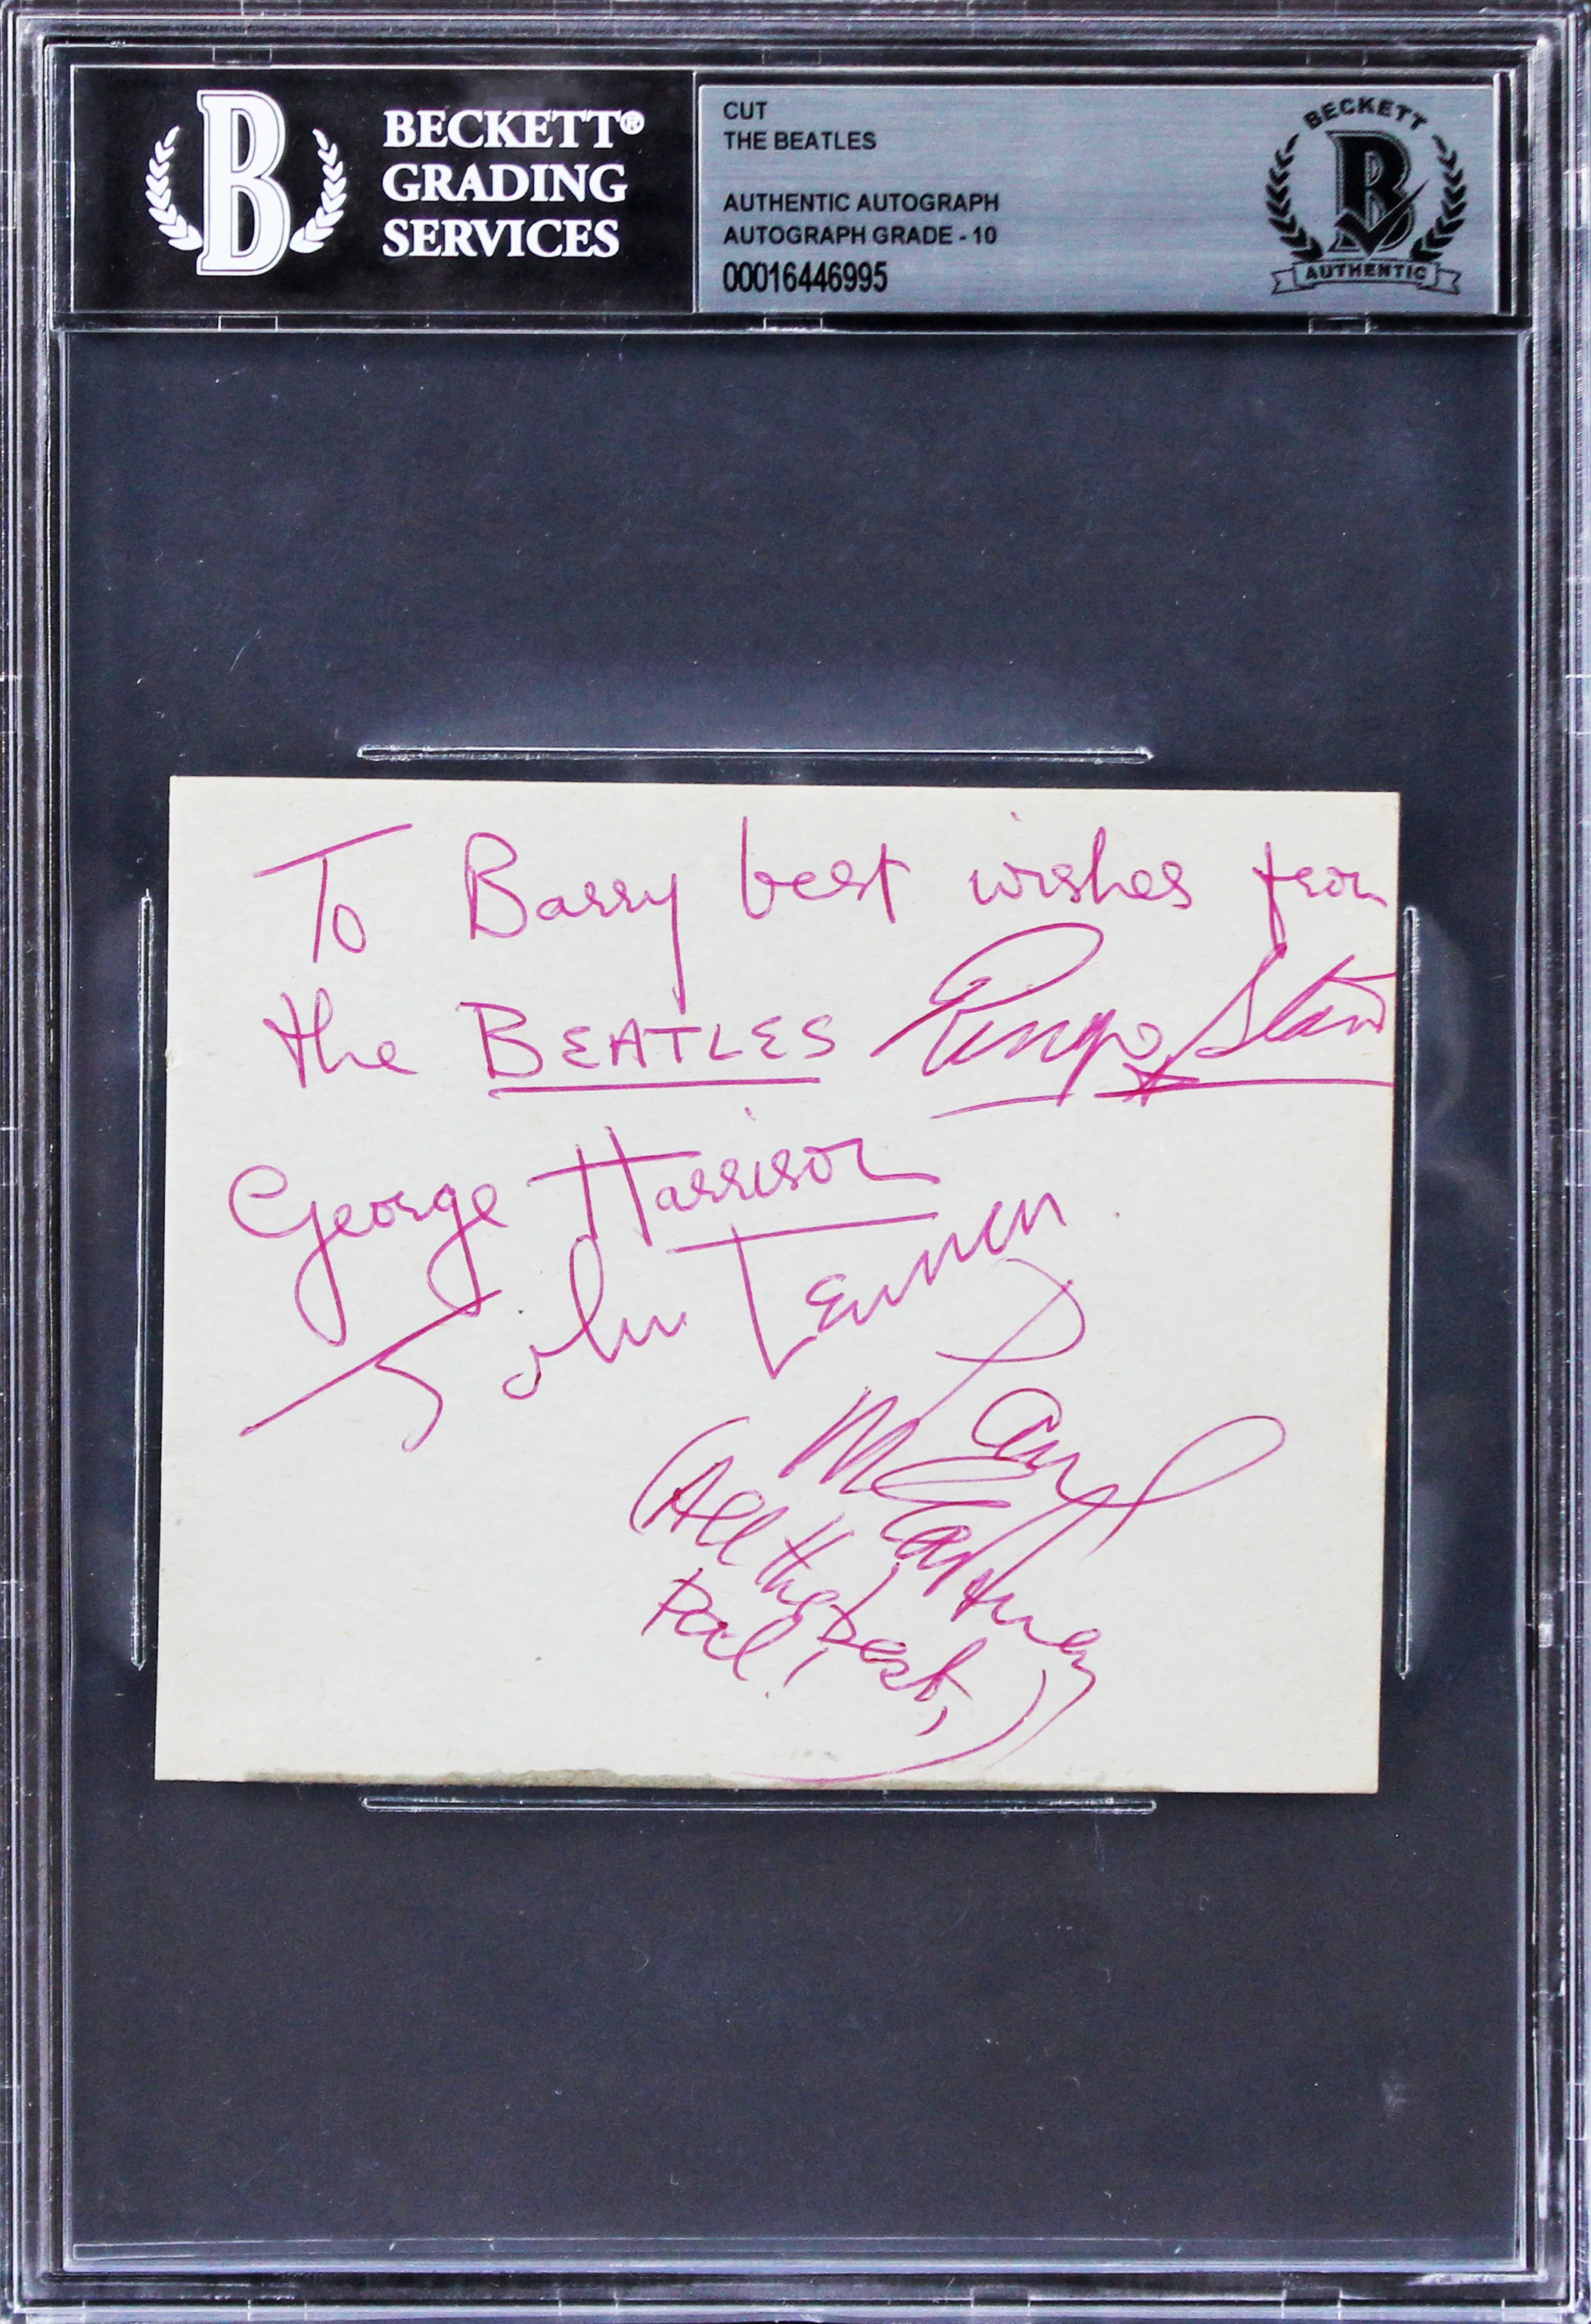 B
BECKETT®
GRADING
SERVICES
CUT
THE BEATLES
AUTHENTIC AUTOGRAPH
AUTOGRAPH GRADE - 10
00016446995
BECKETT
B
AUTHENTIC
To Barry best wishes from
the BEATLES Ringo Starr
George Harrison
John Lennon
Paul
McCartney
(All the Best,
Paul.)